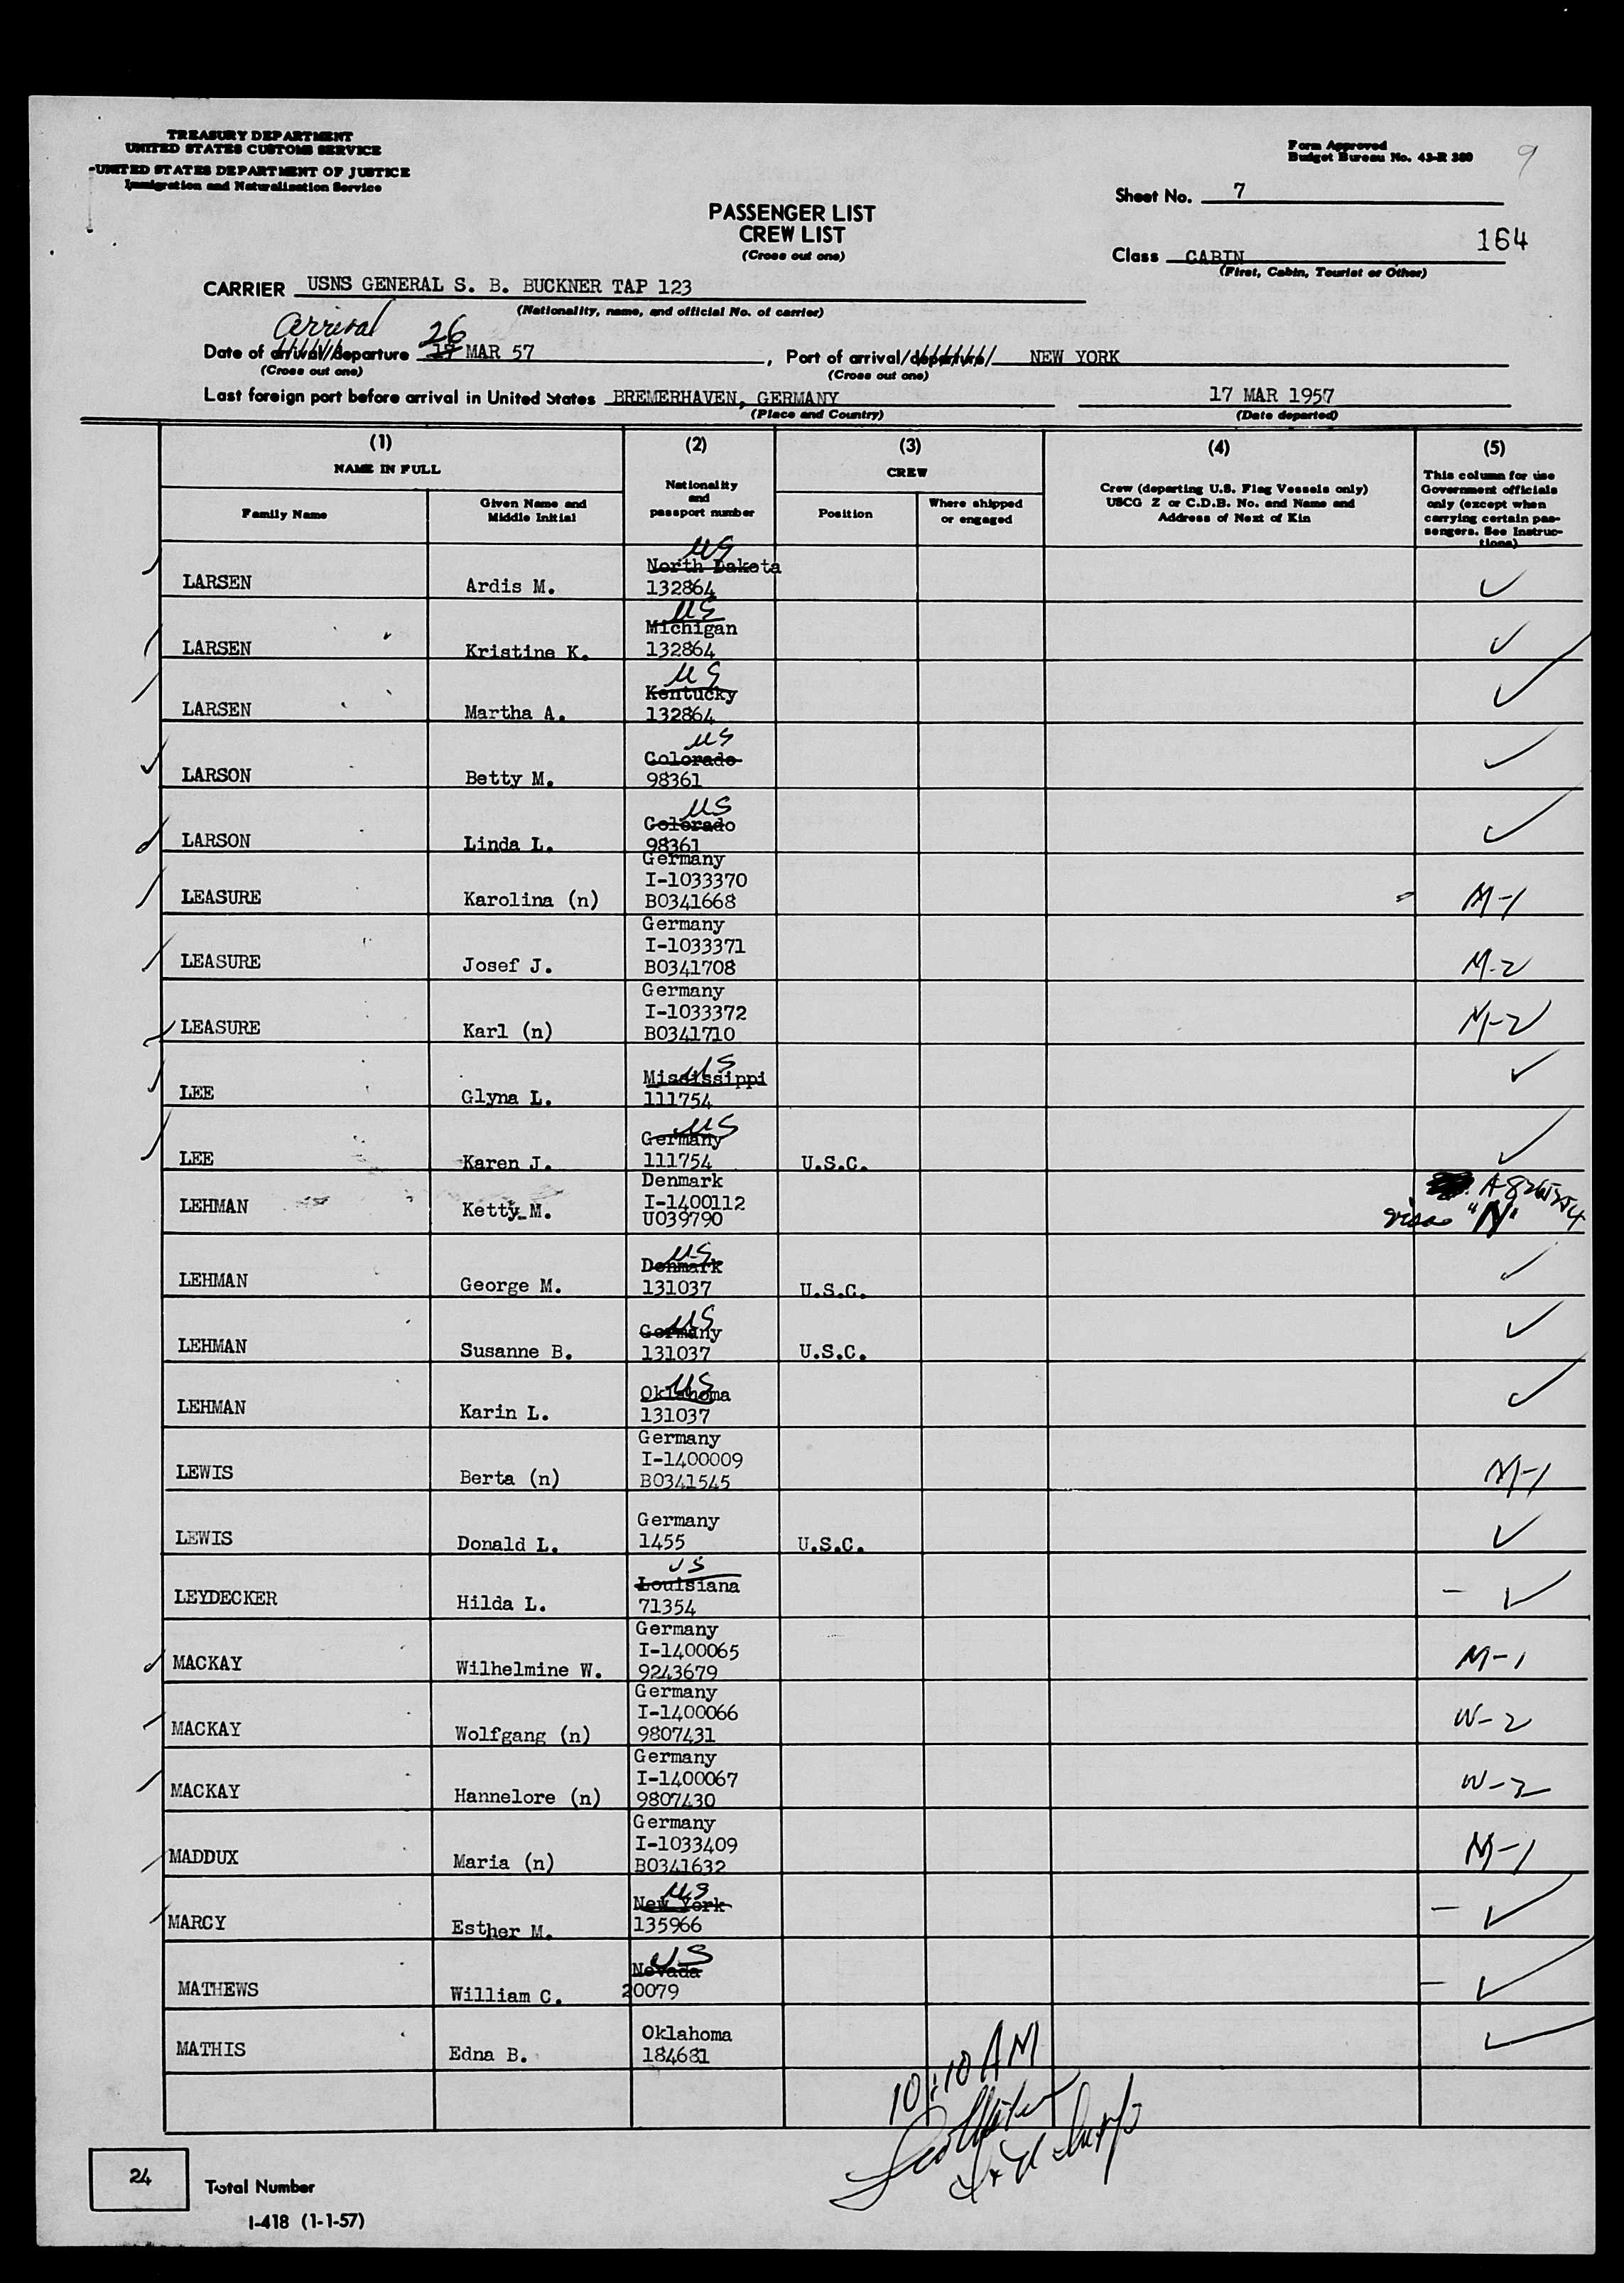 TREASURY DEPARTMENT
UNITED STATES CUSTOMS SERVICE
UNITED STATES DEPARTMENT OF JUSTICE
Immigration and Naturalization Service
Form Approved
Budget Bureau No. 43-R 380
9
Sheet No. 7
PASSENGER LIST
CREW LIST
(Cross out one)
164
Class CABIN
(First, Cabin, Tourist or Other)
CARRIER USNS GENERAL S. B. BUCKNER TAP 123
(Nationality, name, and official No. of carrier)
Arrival 26
Date of arrival/departure 17 MAR 57, Port of arrival/departure NEW YORK
(Cross out one) (Cross out one)
Last foreign port before arrival in United States BREMERHAVEN, GERMANY 17 MAR 1957
(Place and Country) (Date departed)
(1) (2) (3) (4) (5)
NAME IN FULL
Family Name
Given Name and
Middle Initial
Nationality
and
passport number
CREW
Position
Where shipped
or engaged
Crew (departing U.S. Flag Vessels only)
USCG Z or C.D.B. No. and Name and
Address of Next of Kin
This column for use
Government officials
only (except when
carrying certain pas-
sengers. See Instruc-
tions)
US
North Dakota
LARSEN Ardis M. 132864 ✓
US
Michigan
LARSEN Kristine K. 132864 ✓
US
Kentucky
LARSEN Martha A. 132864 ✓
US
Colorado
LARSON Betty M. 98361 ✓
US
Colorado
LARSON Linda L. 98361 ✓
Germany
I-1033370
LEASURE Karolina (n) B0341668 M-1
Germany
I-1033371
LEASURE Josef J. B0341708 M-2
Germany
I-1033372
LEASURE Karl (n) B0341710 M-2
US
Mississippi
LEE Glyna L. 111754 ✓
US
Germany
LEE Karen J. 111754 U.S.C. ✓
Denmark
I-1400112
LEHMAN Ketty M. U039790 visa "N"
US
Denmark
LEHMAN George M. 131037 U.S.C. ✓
US
Germany
LEHMAN Susanne B. 131037 U.S.C. ✓
US
Oklahoma
LEHMAN Karin L. 131037 ✓
Germany
I-1400009
LEWIS Berta (n) B0341545 M-1
Germany
LEWIS Donald L. 1455 U.S.C. ✓
US
Louisiana
LEYDECKER Hilda L. 71354 ✓
Germany
I-1400065
MACKAY Wilhelmine W. 9243679 M-1
Germany
I-1400066
MACKAY Wolfgang (n) 9807431 M-2
Germany
I-1400067
MACKAY Hannelore (n) 9807430 M-2
Germany
I-1033409
MADDUX Maria (n) B0341632 M-1
US
New York
MARCY Esther M. 135966 ✓
US
Nevada
MATHEWS William C. 20079 ✓
Oklahoma
MATHIS Edna B. 184681 ✓
10:10 AM
24 Total Number
I-418 (1-1-57)